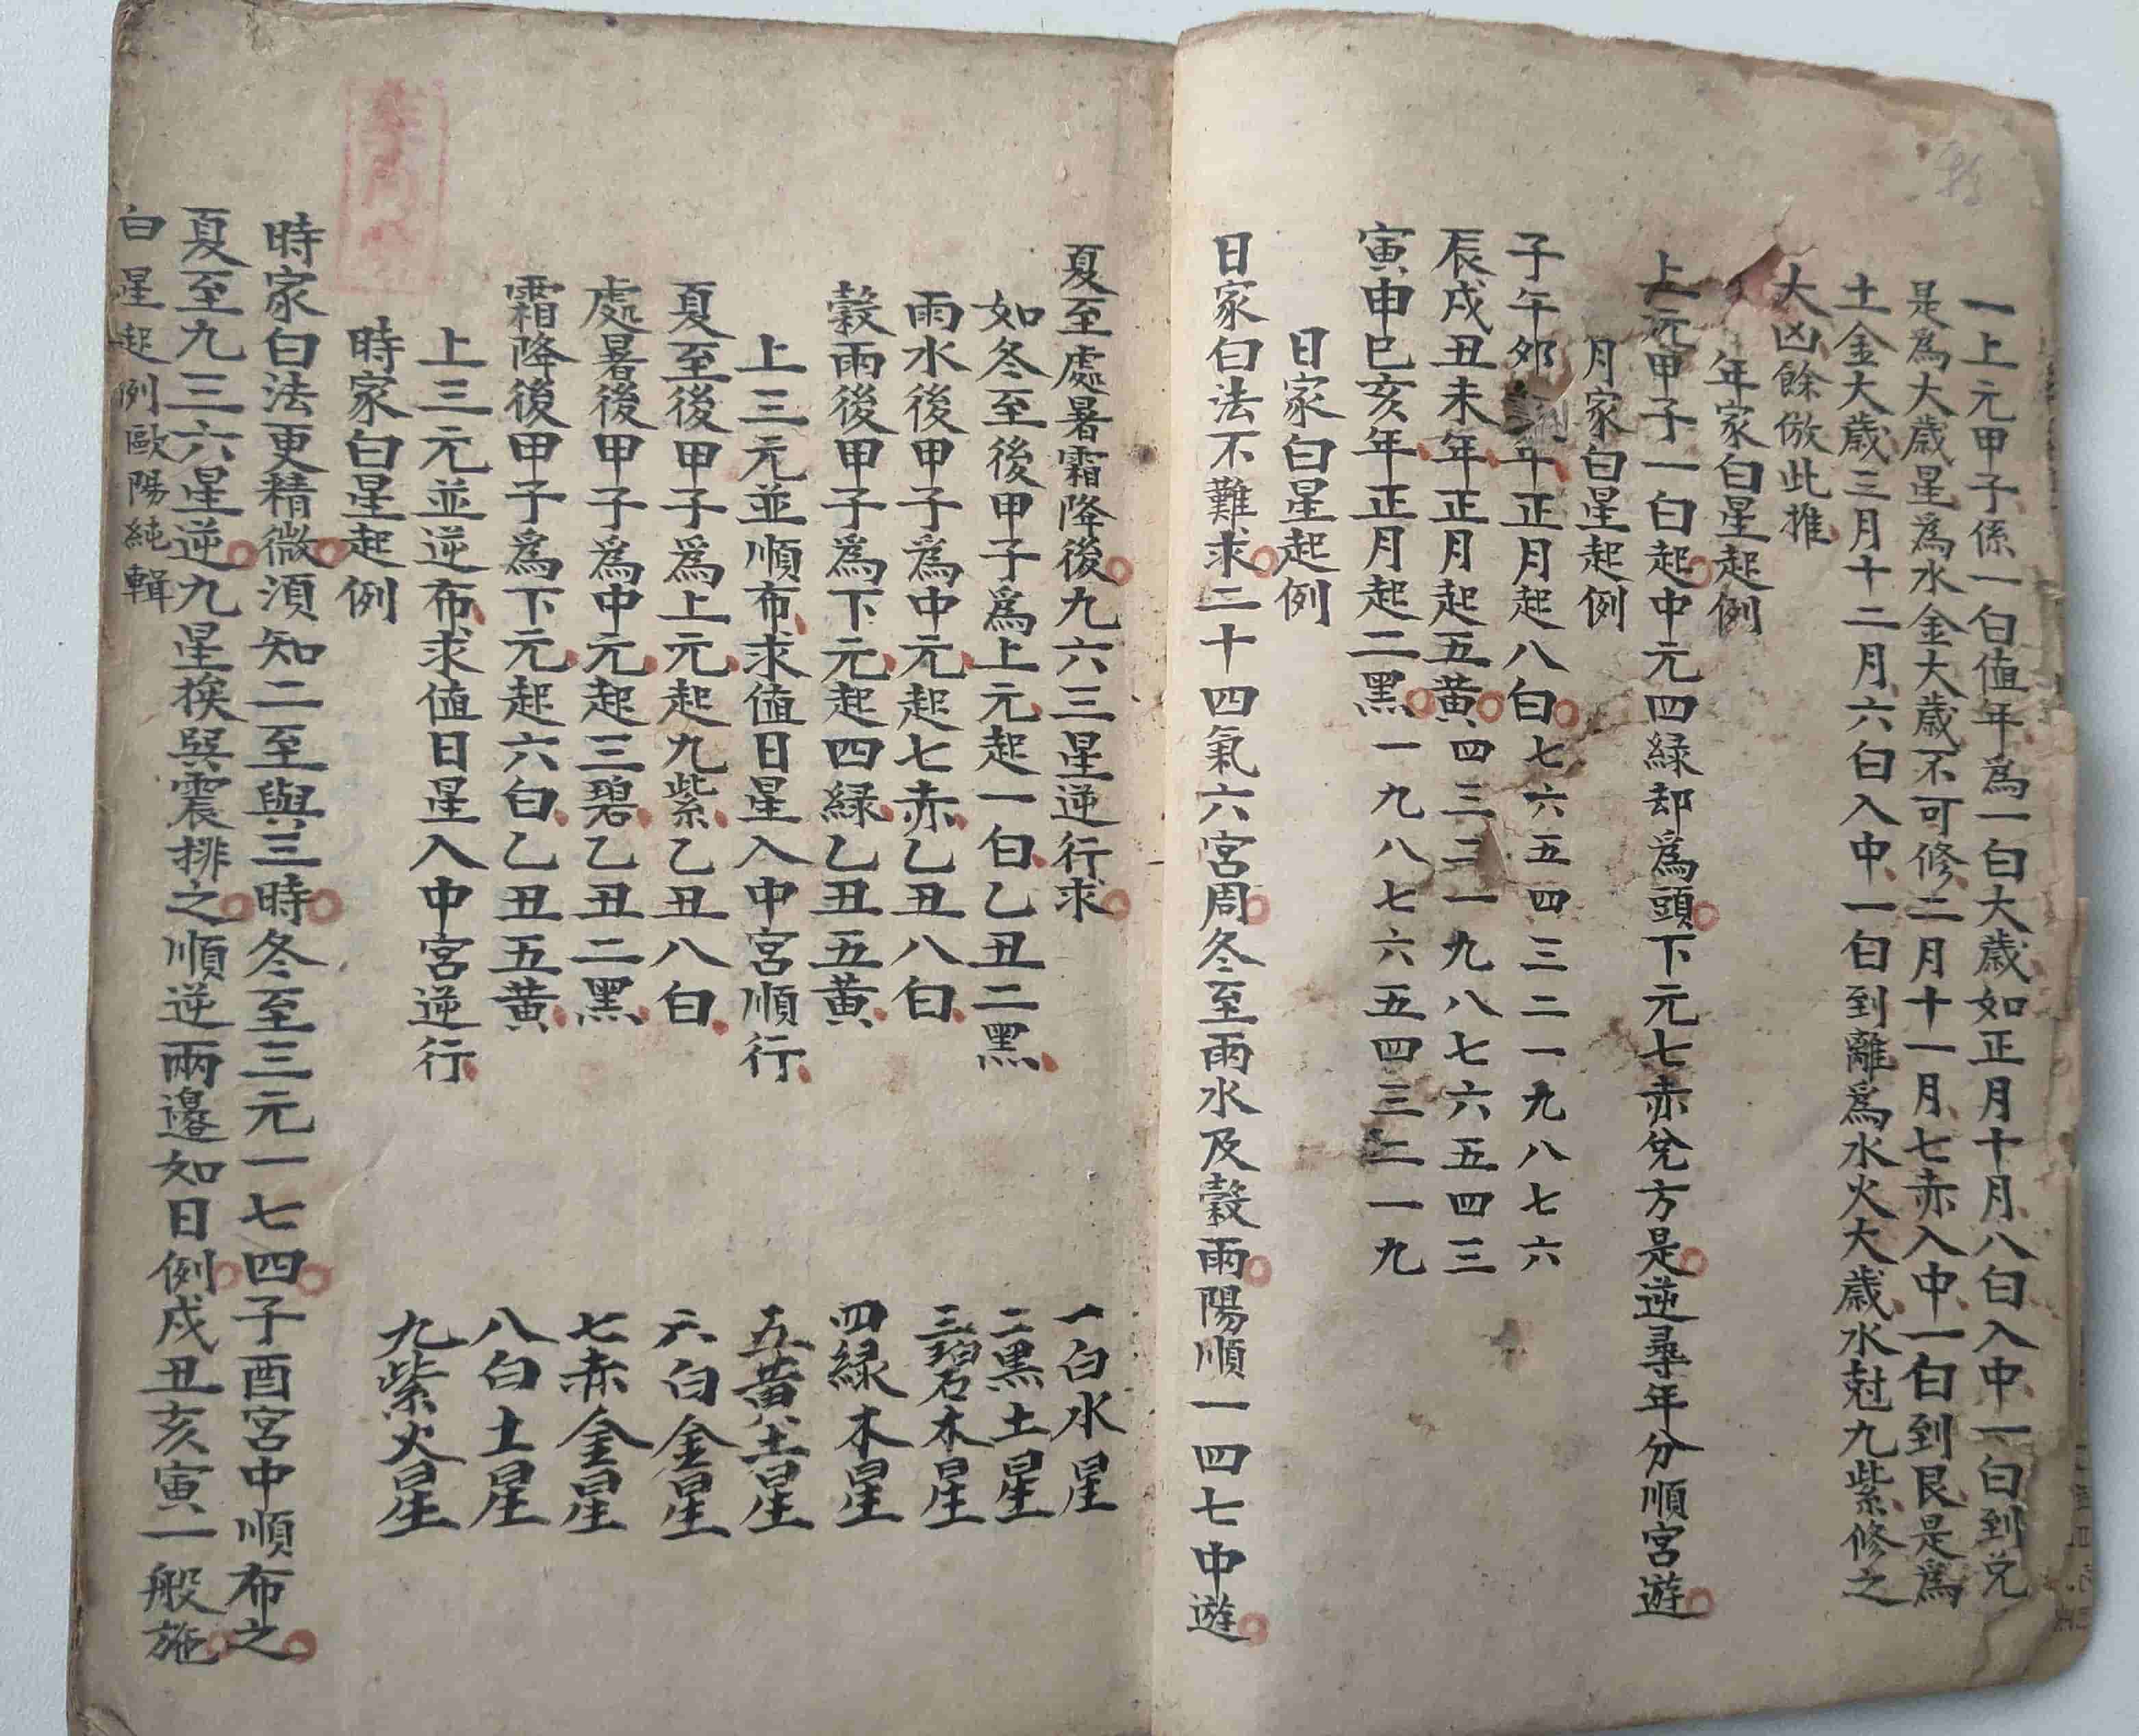 一上元甲子係一白值年為一白大歲如正月十月八白入中一白到兌
是為大歲星為水金大歲不可修二月十一月七赤入中一白到艮是為
土金大歲三月十二月六白入中一白到離為水火大歲水尅九紫修之
大凶餘倣此推
年家白星起例
上元甲子一白起中元四緑却為頭下元七赤兌方是逆尋年分順宮遊
月家白星起例
子午卯年正月起八白七六五四三二一九八七六
辰戌丑未年正月起五黃四三二一九八七六五四三
寅申巳亥年正月起二黑一九八七六五四三二一九
日家白星起例
日家白法不難求二十四氣六宮周冬至雨水及穀雨陽順一四七中遊
夏至處暑霜降後九六三星逆行求
如冬至後甲子為上元起一白乙丑二黑
雨水後甲子為中元起七赤乙丑八白
穀雨後甲子為下元起四緑乙丑五黃
上三元並順布求值日星入中宮順行
夏至後甲子為上元起九紫乙丑八白
處暑後甲子為中元起三碧乙丑二黑
霜降後甲子為下元起六白乙丑五黃
上三元並逆布求值日星入中宮逆行
一白水星
二黒土星
三碧木星
四緑木星
五黃土星
六白金星
七赤金星
八白土星
九紫火星
時家白星起例
時家白法更精微湏知二至與三時冬至三元一七四子酉宮中順布之
夏至九三六星逆九星挨巽震排之順逆兩邊如日例戍丑亥寅一般施
白星起例歐陽純輯